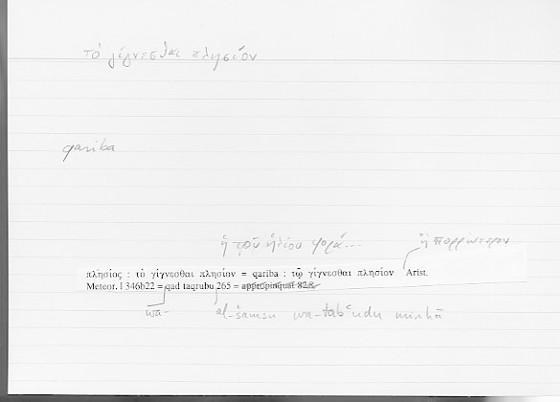 τὸ γίγνεσθαι πλησίον
qariba
ἡ τοῦ ἡλίου φορά... ἢ πορρώτερον
πλησίος : τὸ γίγνεσθαι πλησίον = qariba : τῷ γίγνεσθαι πλησίον Arist.
Meteor. I 346b22 = qad taqrubu 265 = appropinquat 828.
wa- al-šamsu wa-tabʿudu minhā